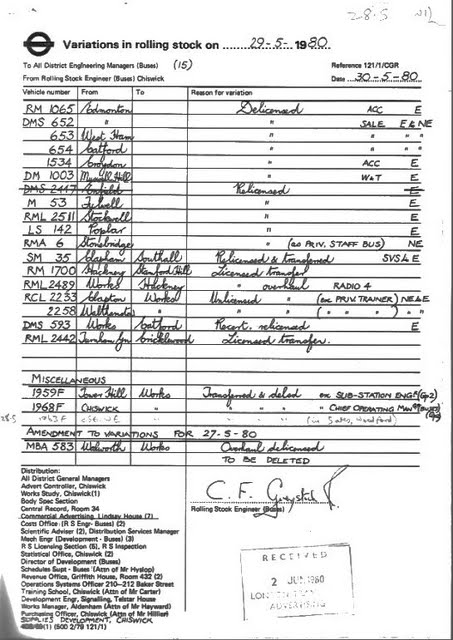 28.5 NIL
Variations in rolling stock on 29-5-1980
To All District Engineering Managers (Buses) (15) Reference 121/1/CGR
From Rolling Stock Engineer (Buses) Chiswick Date 30-5-80
Vehicle number From To Reason for variation
RM 1065 Edmonton Delicensed ACC E
DMS 652 " " SALE E & NE
653 West Ham " " " "
654 Catford " " " "
1534 Croydon " ACC E
DM 1003 Muswell Hill " W&T E
DMS 2447 Enfield Relicensed E
M 53 " E
RML 2511 Stockwell " E
LS 142 Poplar " E
RMA 6 Stonebridge " (as PRIV. STAFF BUS) NE
SM 35 Clapham Southall Relicensed & transferred SVS & E
RM 1700 Hackney Stamford Hill Licensed transfer
RML 2489 Works Hackney " overhaul RADIO 4
RCL 2233 Clapton Works Unlicensed " (ex PRIV. TRAINER) NE & E
2258 Walthamstow " " " ( " " ) " "
DMS 593 Works Catford Recert. relicensed E
RML 2442 Turnham Gn Cricklewood Licensed transfer.
MISCELLANEOUS
1959F Tower Hill Works Transferred & delsd ex SUB-STATION ENGR (Gp2)
1968F CHISWICK " " " " CHIEF OPERATING MANGR (BUSES)
28-5
AMENDMENT TO VARIATIONS FOR 27-5-80
MBA 583 Walworth Works Overhaul delicensed
TO BE DELETED
Distribution:
All District General Managers
Advert Controller, Chiswick
Works Study, Chiswick (1)
Body Spec Section
Central Record, Room 34
Commercial Advertising, Lindsay House (7)
Costs Office (R S Engr- Buses) (2)
Scientific Adviser (2), Distribution Services Manager
Mech Engr (Development - Buses) (3)
R S Licensing Section (5), R S Inspection
Statistical Office, Chiswick (2)
Director of Development (Buses)
Schedules Supt - Buses (Attn of Mr Hyslop)
Revenue Office, Griffith House, Room 432 (2)
Operations Systems Officer 210-212 Baker Street
Training School, Chiswick (Attn of Mr Carter)
Development Engr, Signalling, Telstar House
Works Manager, Aldenham (Attn of Mr Hayward)
Purchasing Officer, Chiswick (Attn of Mr Hillier)
SUPPLIES DEVELOPMENT, CHISWICK
(1) (500 2/79 121/1)
C. F.
Rolling Stock Engineer (Buses)
RECEIVED
2 JUN 1980
ADVERTISING